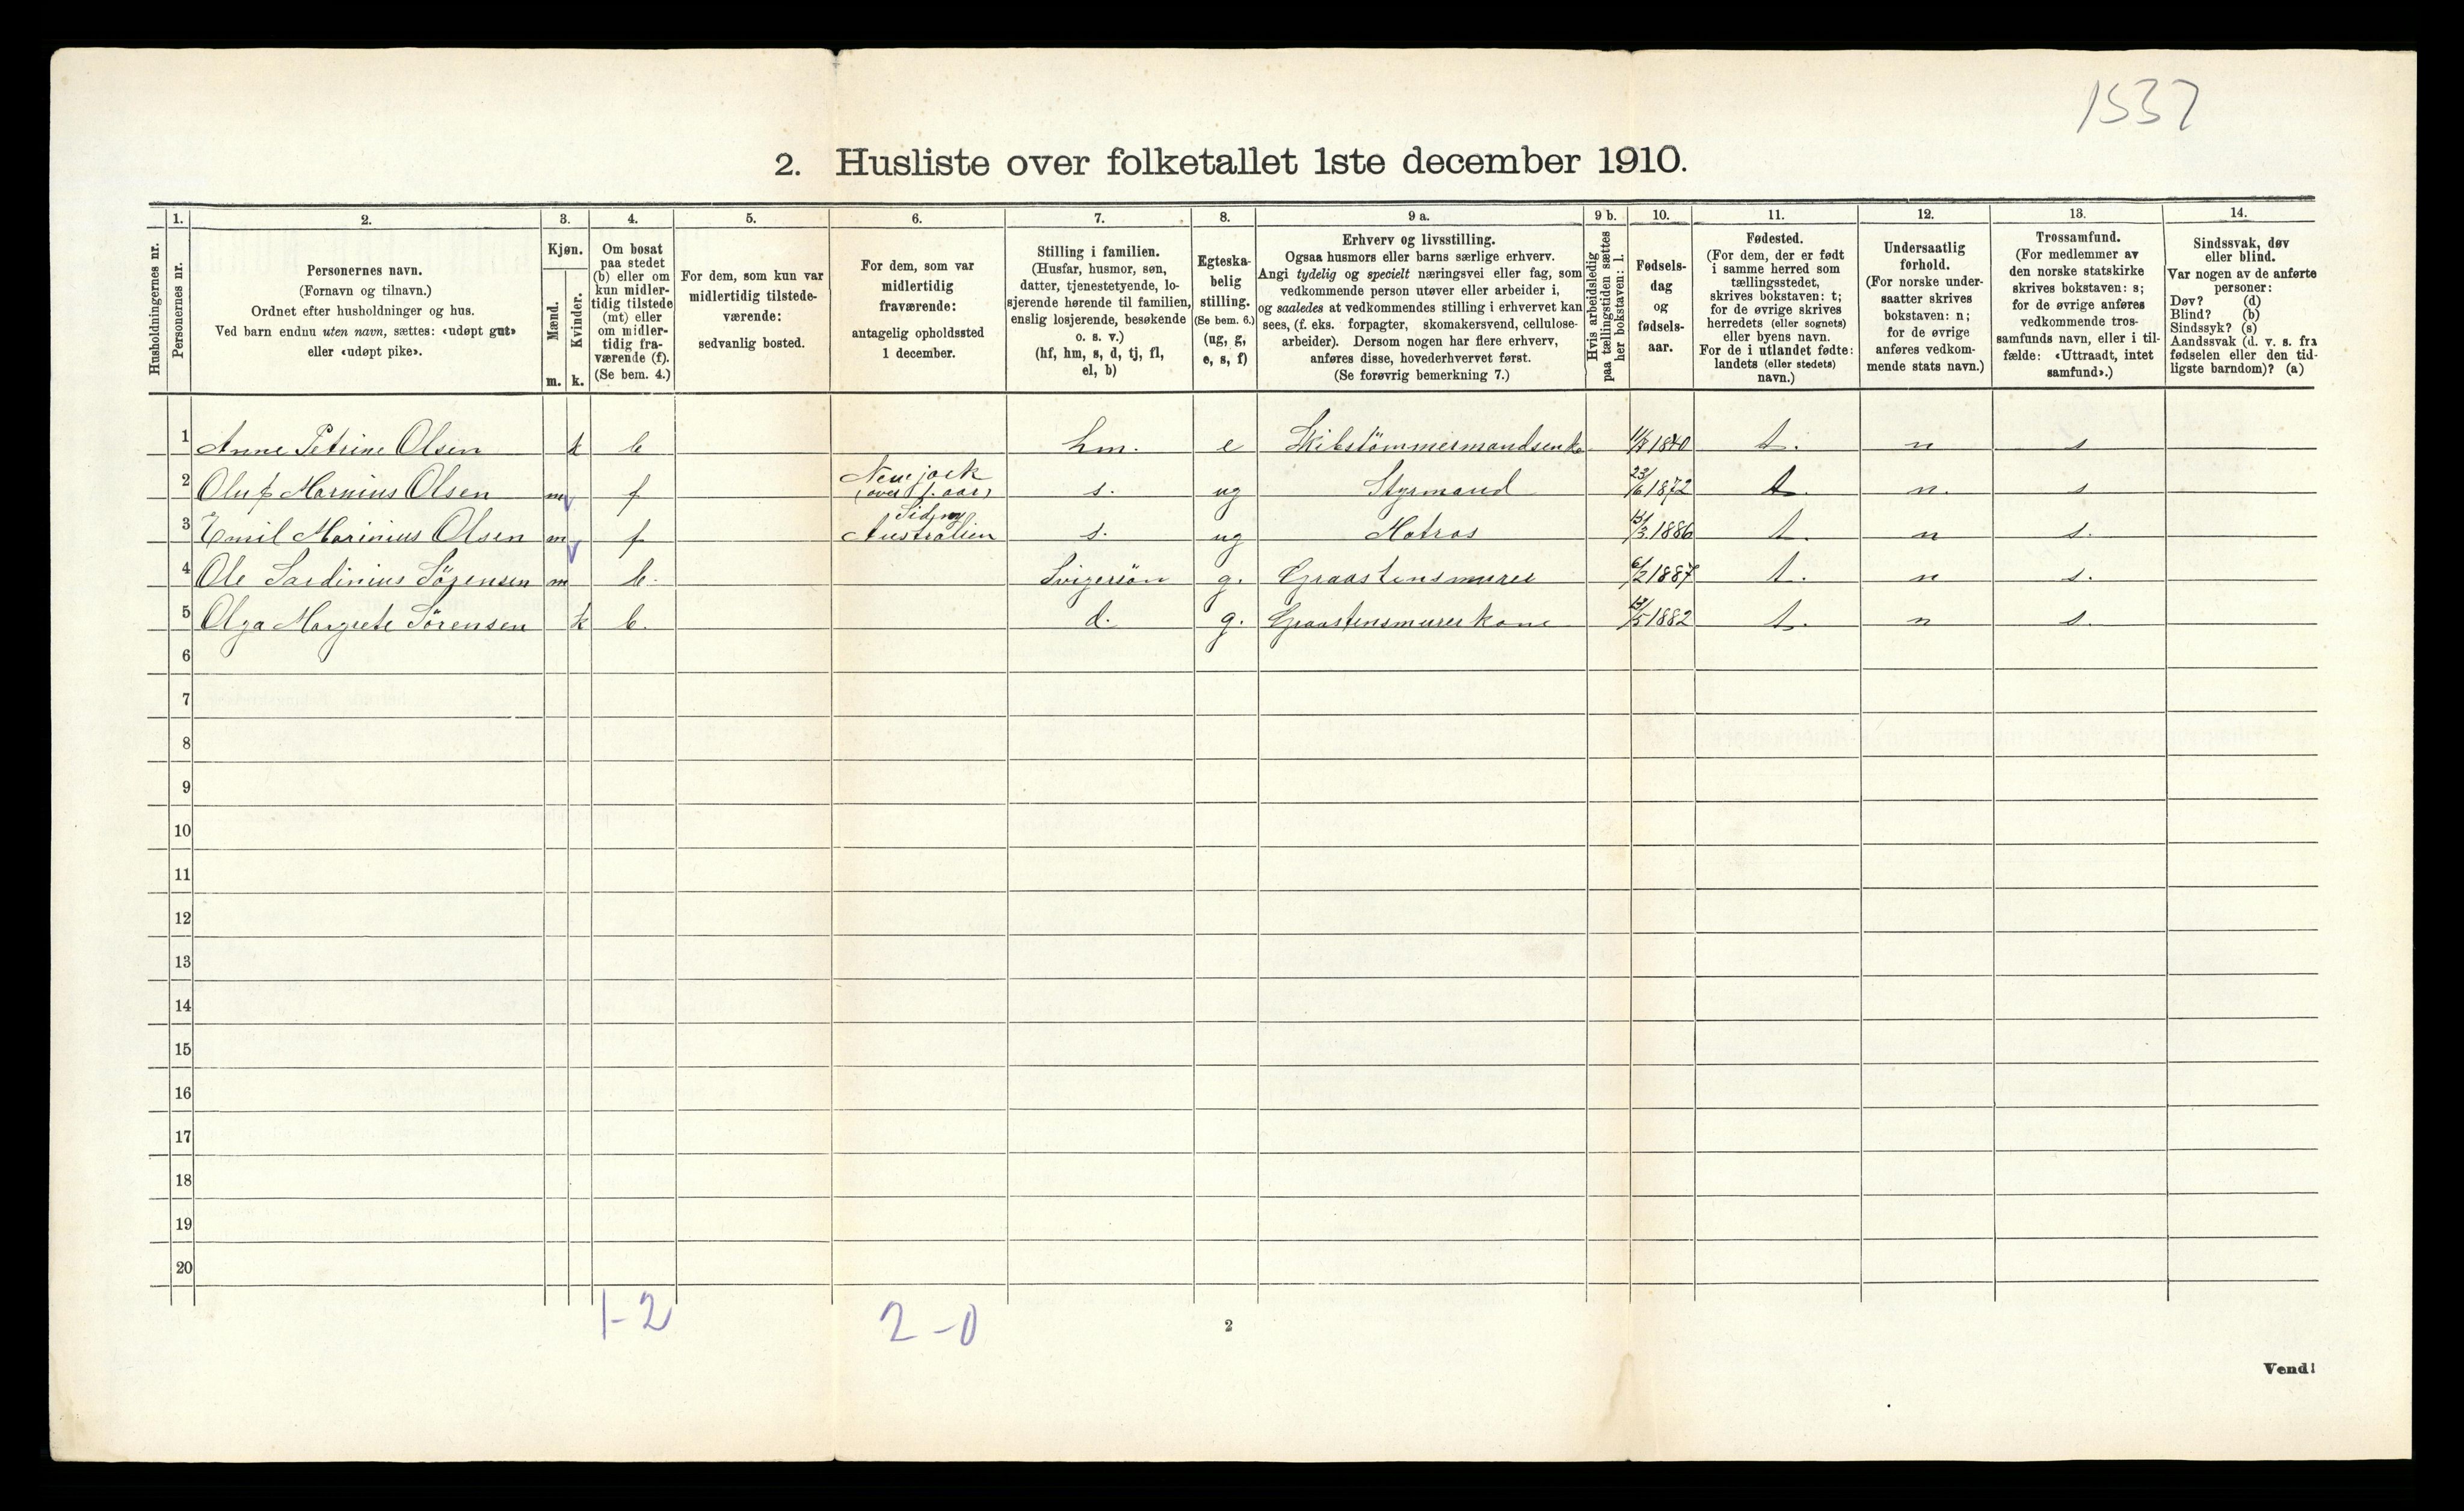 1537
2. Husliste over folketallet 1ste december 1910.
1. 2. 3. 4. 5. 6. 7. 8. 9 a. 9 b. 10. 11. 12. 13. 14.
Husholdningernes nr.
Personernes nr.
Personernes navn.
(Fornavn og tilnavn.)
Ordnet efter husholdninger og hus.
Ved barn endnu uten navn, sættes: «udøpt gut»
eller «udøpt pike».
Kjøn.
Mænd.
Kvinder.
m. k.
Om bosat
paa stedet
(b) eller om
kun midler-
tidig tilstede
(mt) eller
om midler-
tidig fra-
værende (f).
(Se bem. 4.)
For dem, som kun var
midlertidig tilstede-
værende:
sedvanlig bosted.
For dem, som var
midlertidig
fraværende:
antagelig opholdssted
1 december.
Stilling i familien.
(Husfar, husmor, søn,
datter, tjenestetyende, lo-
sjerende hørende til familien,
enslig losjerende, besøkende
o. s. v.)
(hf, hm, s, d, tj, fl,
el, b)
Egteska-
belig
stilling.
(Se bem. 6.)
(ug, g,
e, s, f)
Erhverv og livsstilling.
Ogsaa husmors eller barns særlige erhverv.
Angi tydelig og specielt næringsvei eller fag, som
vedkommende person utøver eller arbeider i,
og saaledes at vedkommendes stilling i erhvervet kan
sees, (f. eks. forpagter, skomakersvend, cellulose-
arbeider). Dersom nogen har flere erhverv,
anføres disse, hovederhvervet først.
(Se forøvrig bemerkning 7.)
Hvis arbeidsledig
paa tællingstiden sættes
her bokstaven: l.
Fødsels-
dag
og
fødsels-
aar.
Fødested.
(For dem, der er født
i samme herred som
tællingsstedet,
skrives bokstaven: t;
for de øvrige skrives
herredets (eller sognets)
eller byens navn.
For de i utlandet fødte:
landets (eller stedets)
navn.)
Undersaatlig
forhold.
(For norske under-
saatter skrives
bokstaven: n;
for de øvrige
anføres vedkom-
mende stats navn.)
Trossamfund.
(For medlemmer av
den norske statskirke
skrives bokstaven: s;
for de øvrige anføres
vedkommende tros-
samfunds navn, eller i til-
fælde: «Uttraadt, intet
samfund».)
Sindssvak, døv
eller blind.
Var nogen av de anførte
personer:
Døv? (d)
Blind? (b)
Sindssyk? (s)
Aandssvak (d. v. s. fra
fødselen eller den tid-
ligste barndom)? (a)
1 Anne Petrine Olsen k b hm. e Skibstömmermandsenke 1840 t. n s
2 Oluf Marnius Olsen m f Newjork (over 1. aar) s. ug Styrmand 23/6 1872 t. n. s
3 Emil Marinius Olsen m f Sidny Australien s. ug Matros 1886 t. n s.
4 Ole Sardinius Sörensen m b. Svigersön g. Graastensmurer 6/2 1887 t. n s.
5 Olga Margrete Sörensen k b. d. g. Graastensmurerkone 1882 t. n s.
6
7
8
9
10
11
12
13
14
15
16
17
18
19
20
1-2
2-0
2
Vend!